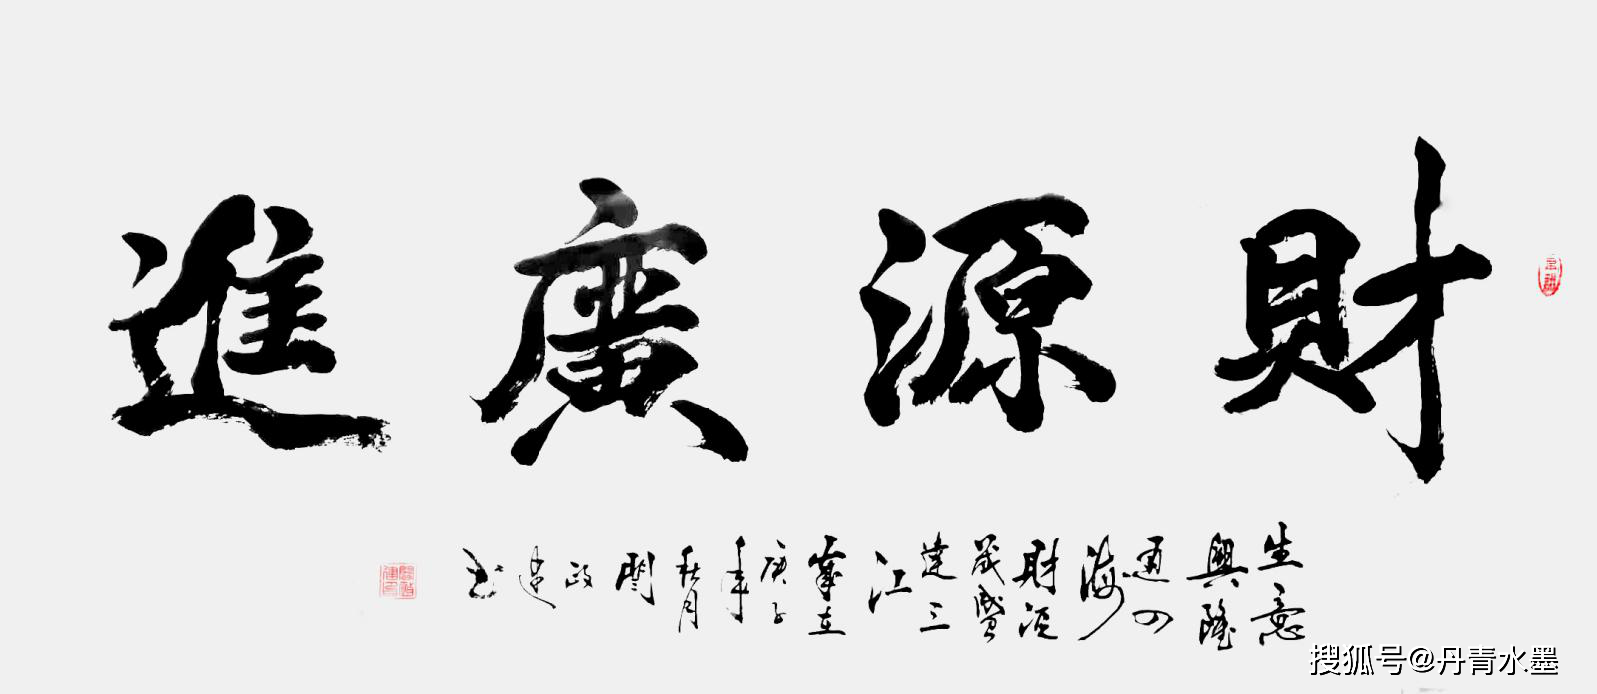 財源廣進
生意
興隆
通四
海
財源
茂盛
達三
江
歲在
庚子
年
秋月
政
书
搜狐号@丹青水墨